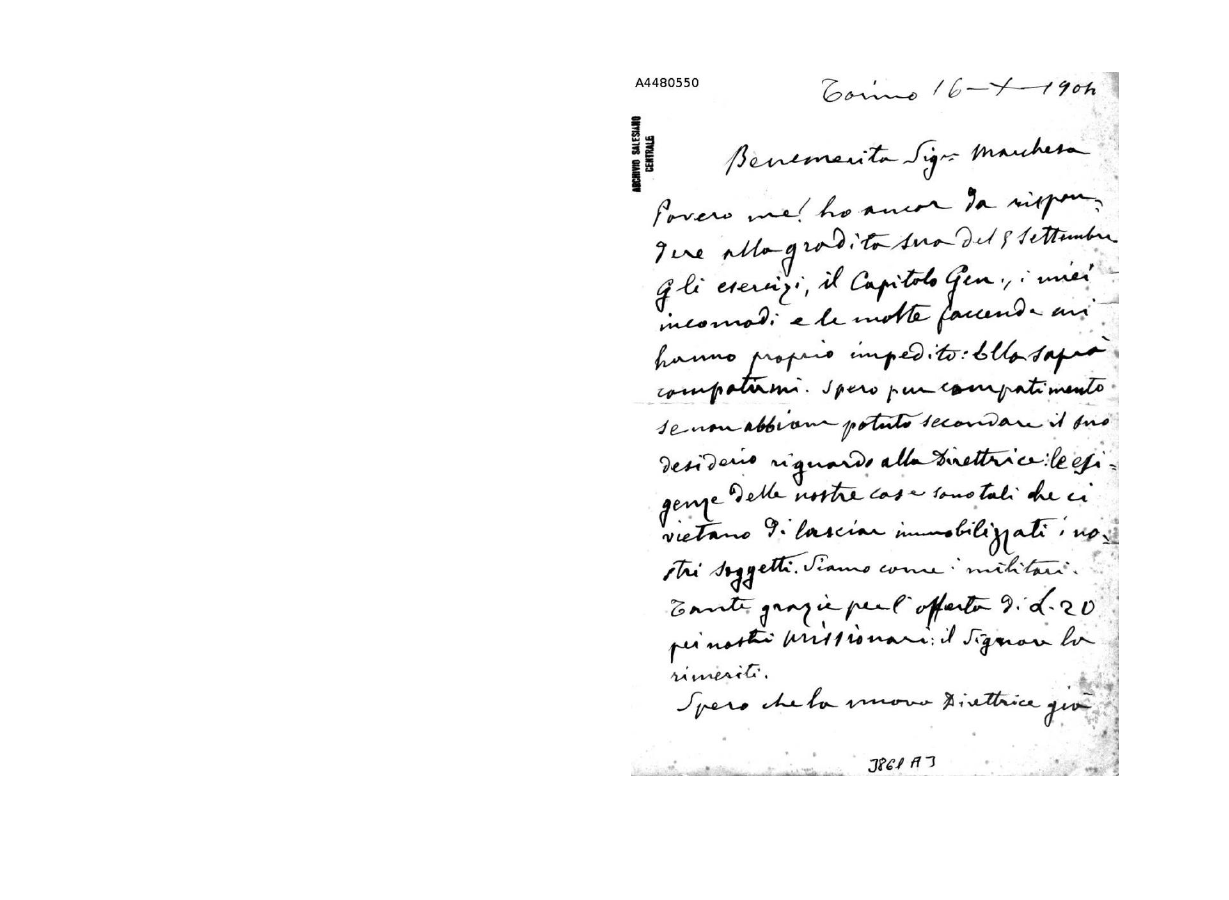 A4480550
Torino 16-X-1904
ARCHIVIO SALESIANO
CENTRALE
Benemerita Sigra Marchesa
Povero me! ho ancor da rispon-
dere alla gradita sua del 5 Settembre
Gli esercizi, il Capitolo Gen., i miei
incomodi e le molte faccende mi
hanno proprio impedito: Ella saprà
compatirmi. Spero pur compatimento
se non abbiam potuto secondare il suo
desiderio riguardo alla Direttrice: le esi-
genze delle nostre case sono tali che ci
vietano di lasciar immobilizzati i no-
stri soggetti. Siamo come i militari.
Tante grazie per l'offerta di L. 20
pei nostri missionari: il Signore la
rimeriti.
Spero che la nuova Direttrice già
3861 A3